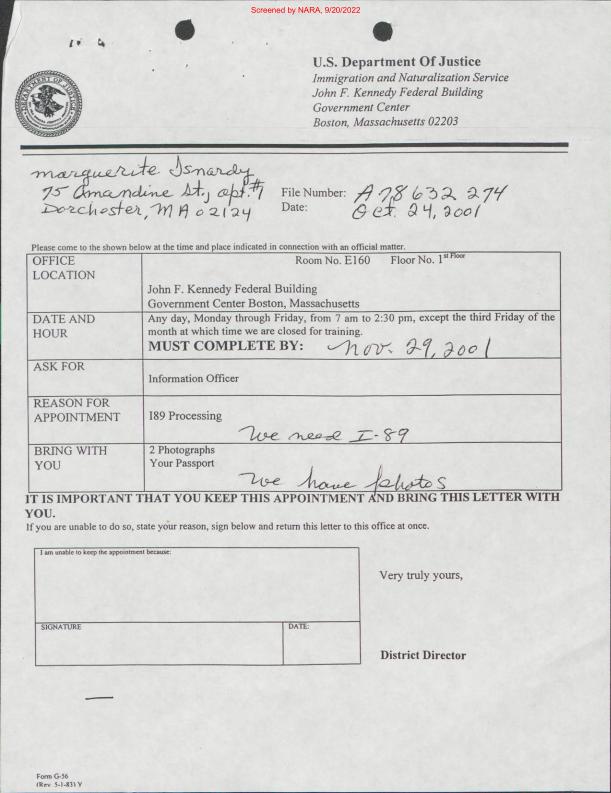 Screened by NARA, 9/20/2022
U.S. Department Of Justice
Immigration and Naturalization Service
John F. Kennedy Federal Building
Government Center
Boston, Massachusetts 02203
marguerite Isnardy
75 Amandine St., apt.#1
Dorchester, MA 02124
File Number: A78 632 274
Date: Oct. 24, 2001
Please come to the shown below at the time and place indicated in connection with an official matter.
OFFICE LOCATION
Room No. E160 Floor No. 1st Floor
John F. Kennedy Federal Building
Government Center Boston, Massachusetts
DATE AND HOUR
Any day, Monday through Friday, from 7 am to 2:30 pm, except the third Friday of the
month at which time we are closed for training.
MUST COMPLETE BY: Nov. 29, 2001
ASK FOR
Information Officer
REASON FOR APPOINTMENT
I89 Processing
We need I-89
BRING WITH YOU
2 Photographs
Your Passport
We have photos
IT IS IMPORTANT THAT YOU KEEP THIS APPOINTMENT AND BRING THIS LETTER WITH
YOU.
If you are unable to do so, state your reason, sign below and return this letter to this office at once.
I am unable to keep the appointment because:
Very truly yours,
SIGNATURE
DATE:
District Director
Form G-56
(Rev. 5-1-83) Y